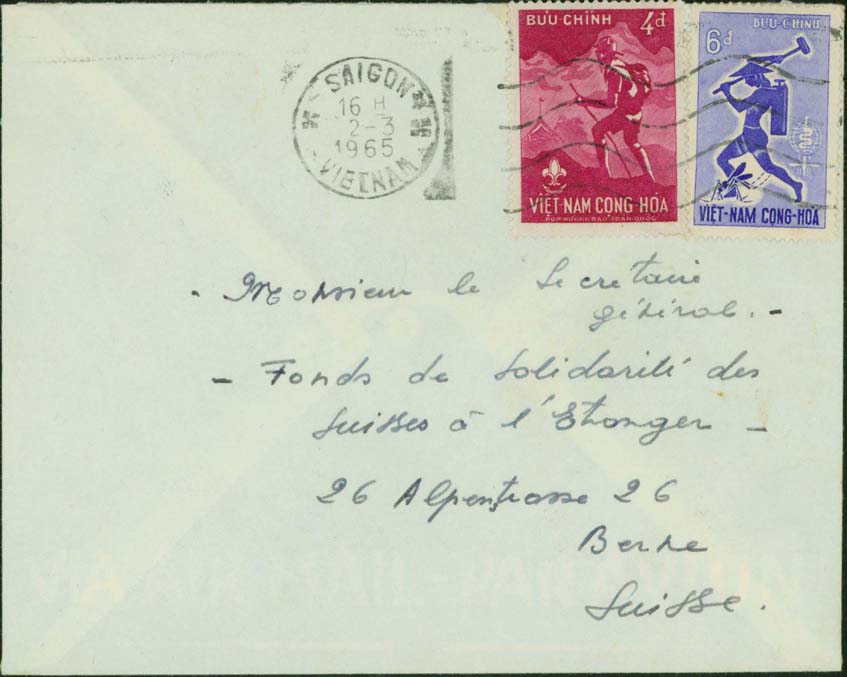 SAIGON
16 H
2-3
1965
VIETNAM
BƯU-CHÍNH 4đ
VIỆT-NAM CỘNG-HÒA
HỌP HƯỚNG ĐẠO TOÀN QUỐC
BƯU-CHÍNH
6đ
VIỆT-NAM CỘNG-HOÀ
- Monsieur le Secretaire
général. -
- Fonds de Solidarité des
Suisses à l'Etranger -
26 Alpenstrasse 26
Berne
Suisse.